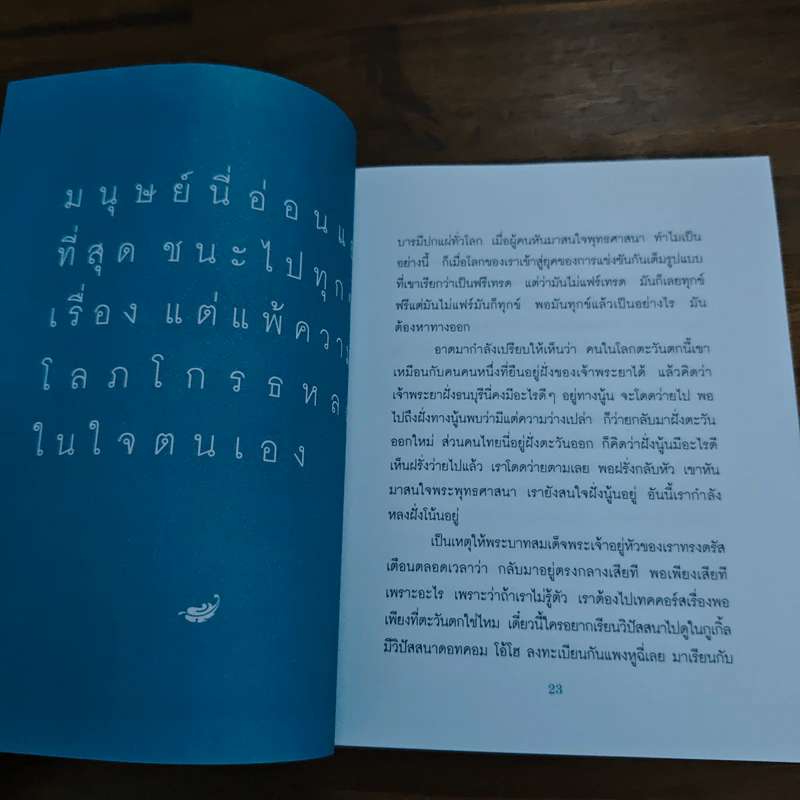 มนุษย์นี่อ่อนแอ
ที่สุด ชนะไปทุก
เรื่อง แต่แพ้ความ
โลภโกรธหลง
ในใจตนเอง
บารมีปกแผ่ทั่วโลก เมื่อผู้คนหันมาสนใจพุทธศาสนา ทำไมเป็น
อย่างนี้ ก็เมื่อโลกของเราเข้าสู่ยุคของการแข่งขันกันเต็มรูปแบบ
ที่เขาเรียกว่าเป็นฟรีเทรด แต่ว่ามันไม่แฟร์เทรด มันก็เลยทุกข์
ฟรีแต่มันไม่แฟร์มันก็ทุกข์ พอมันทุกข์แล้วเป็นอย่างไร มัน
ต้องหาทางออก
อาตมากำลังเปรียบให้เห็นว่า คนในโลกตะวันตกนี้เขา
เหมือนกับคนคนหนึ่งที่ยืนอยู่ฝั่งของเจ้าพระยาใต้ แล้วคิดว่า
เจ้าพระยาฝั่งธนบุรีนี่คงมีอะไรดีๆ อยู่ทางนู้น จะโดดว่ายไป พอ
ไปถึงฝั่งทางนู้นพบว่ามีแต่ความว่างเปล่า ก็ว่ายกลับมาฝั่งตะวัน
ออกใหม่ ส่วนคนไทยนี่อยู่ฝั่งตะวันออก ก็คิดว่าฝั่งนู้นมีอะไรดี
เห็นฝรั่งว่ายไปแล้ว เราโดดว่ายตามเลย พอฝรั่งกลับหัว เขาหัน
มาสนใจพระพุทธศาสนา เรายังสนใจฝั่งนู้นอยู่ อันนี้เรากำลัง
หลงฝั่งโน้นอยู่
เป็นเหตุให้พระบาทสมเด็จพระเจ้าอยู่หัวของเราทรงตรัส
เตือนตลอดเวลาว่า กลับมาอยู่ตรงกลางเสียที พอเพียงเสียที
เพราะอะไร เพราะว่าถ้าเราไม่รู้ตัว เราต้องไปเทคคอร์สเรื่องพอ
เพียงที่ตะวันตกใช่ไหม เดี๋ยวนี้ใครอยากเรียนวิปัสสนาไปดูในกูเกิ้ล
มีวิปัสสนาดอทคอม โอ้โฮ ลงทะเบียนกันแพงหูฉี่เลย มาเรียนกับ
23